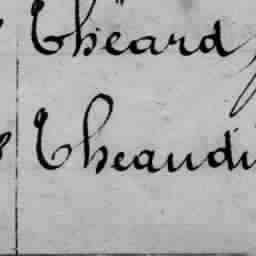 Théard
Theaudi